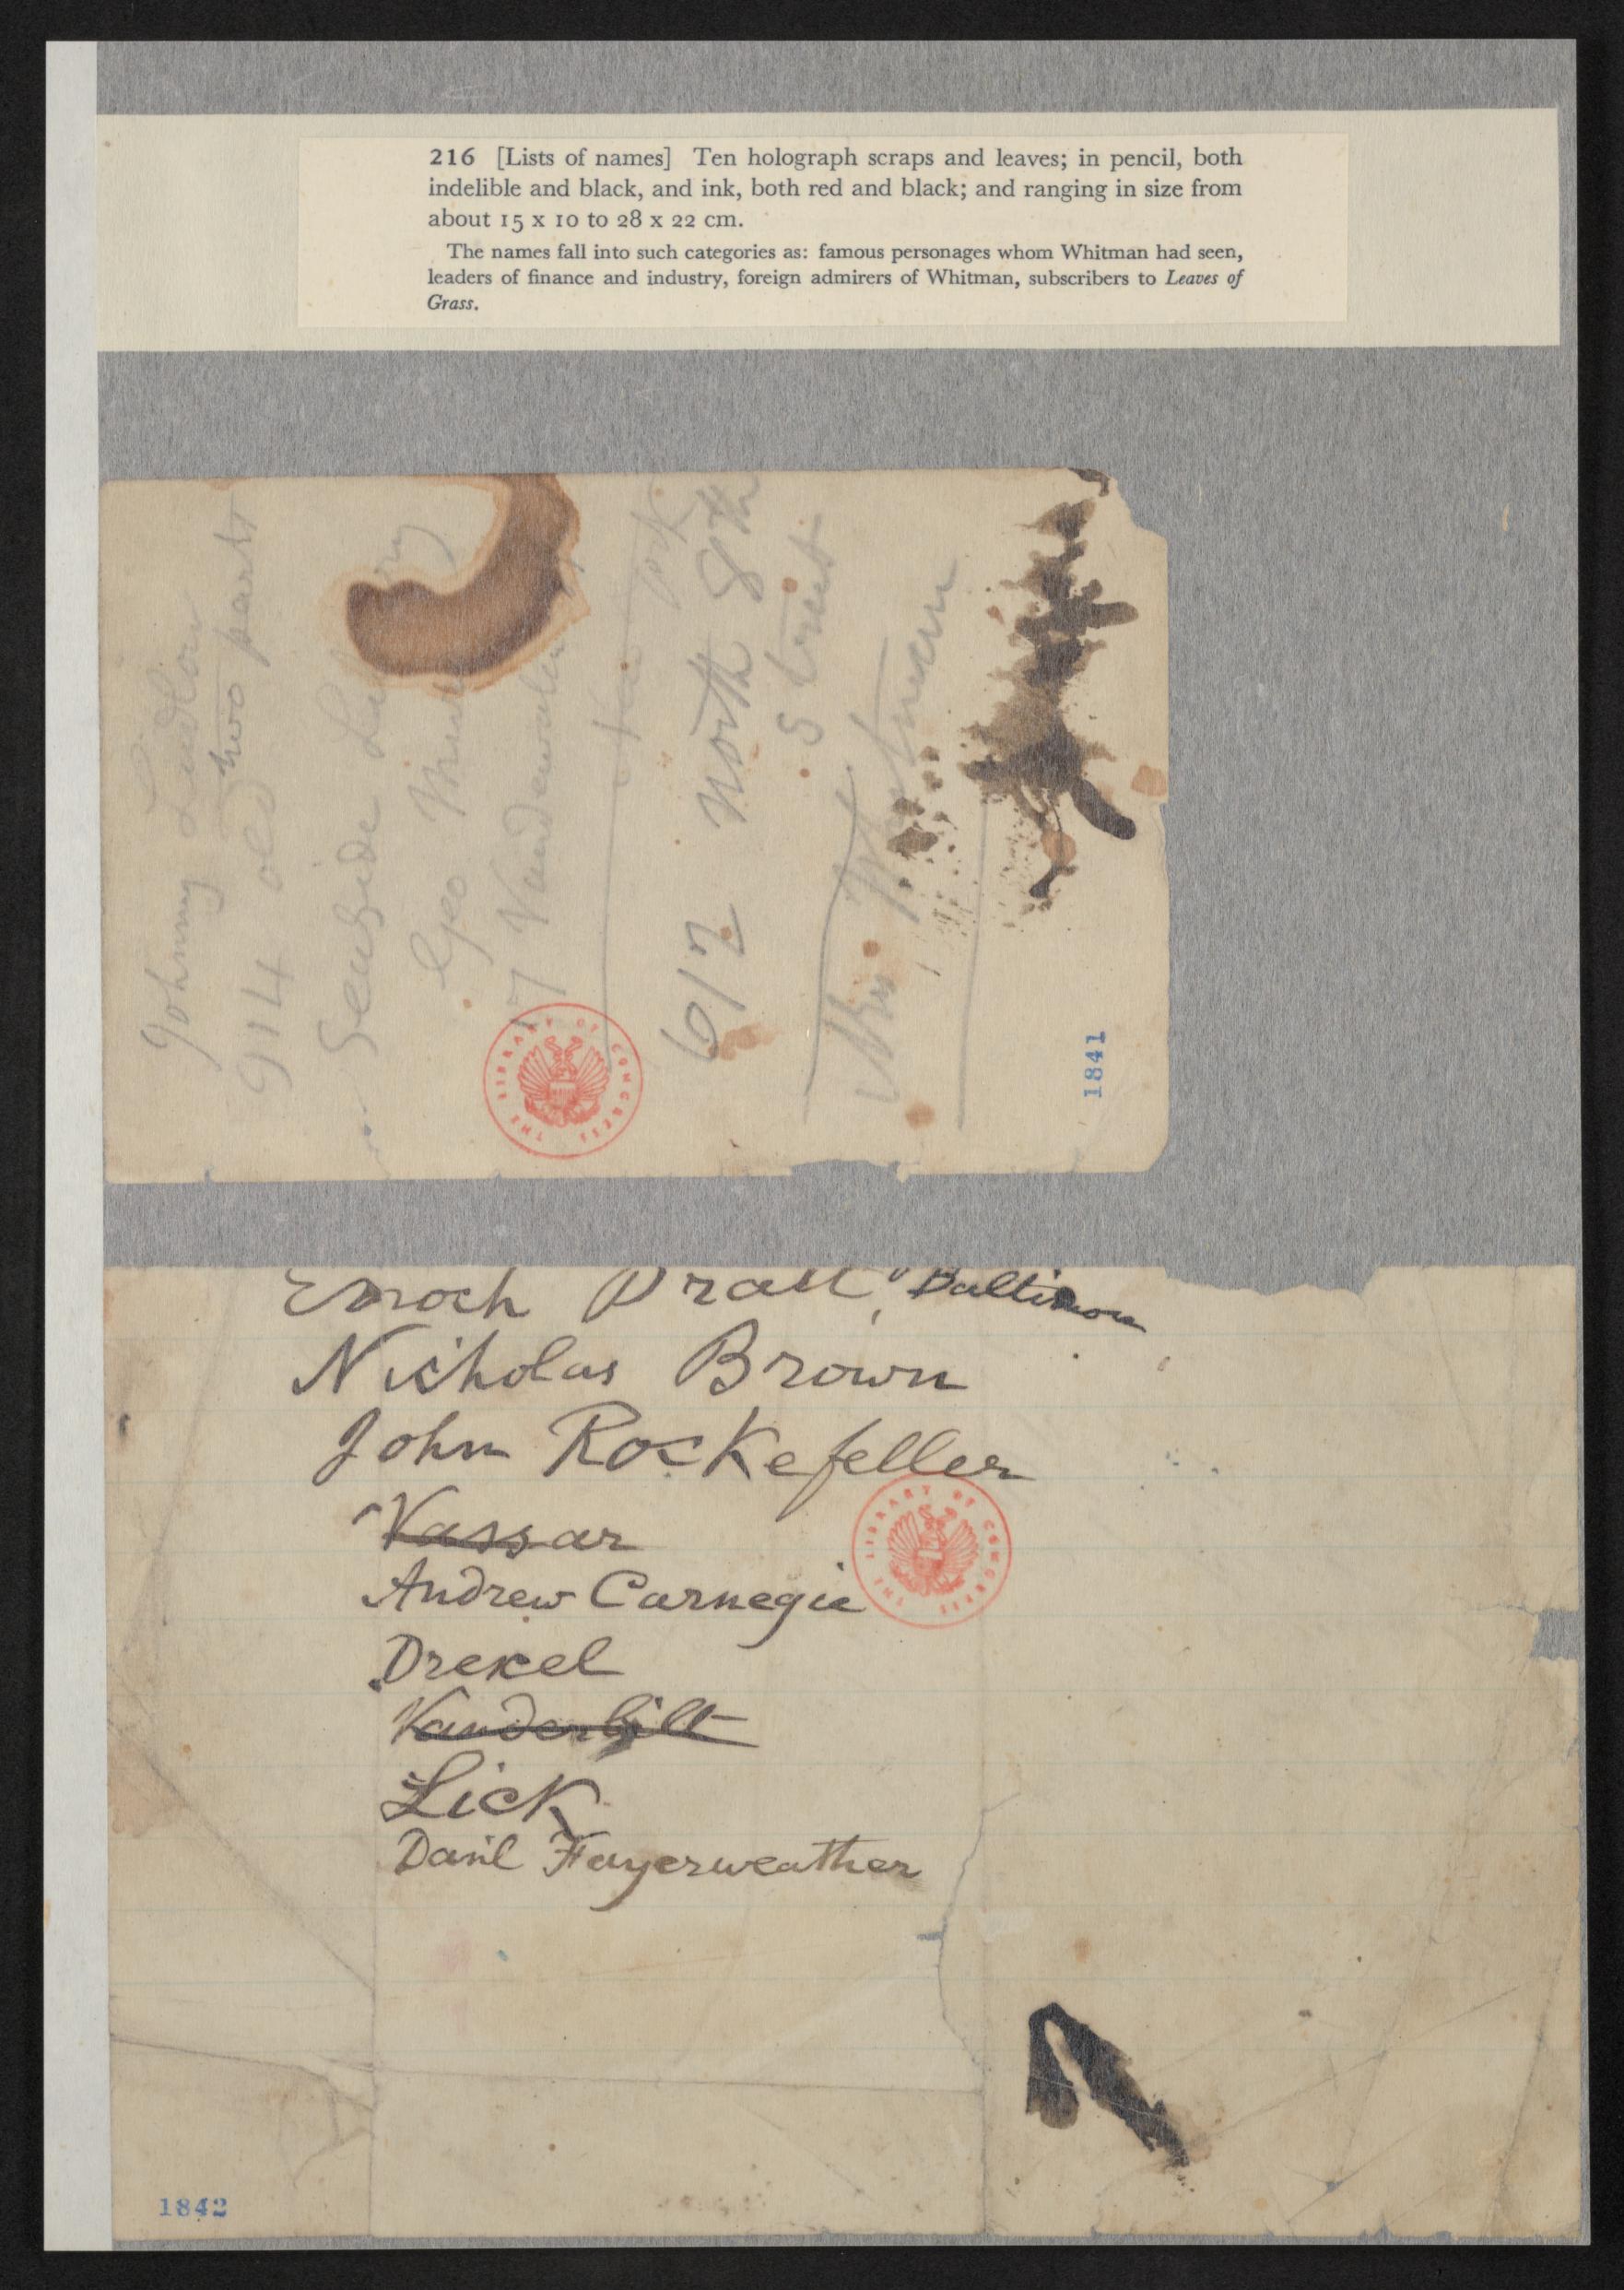 216 [Lists of names] Ten holograph scraps and leaves; in pencil, both
indelible and black, and ink, both red and black; and ranging in size from
about 15 x 10 to 28 x 22 cm.
The names fall into such categories as: famous personages whom Whitman had seen,
leaders of finance and industry, foreign admirers of Whitman, subscribers to Leaves of
Grass.
Johnny Ludlow
914 old two parts
Seaside
Geo
17
York
617 North 8th
Street
Mrs Whitman
THE LIBRARY OF CONGRESS
1841
Enoch Pratt, Baltimore
Nicholas Brown
John Rockefeller
Vassar
Andrew Carnegie
THE LIBRARY OF CONGRESS
Drexel
Vanderbilt
Lick
Danl Fayerweather
1842